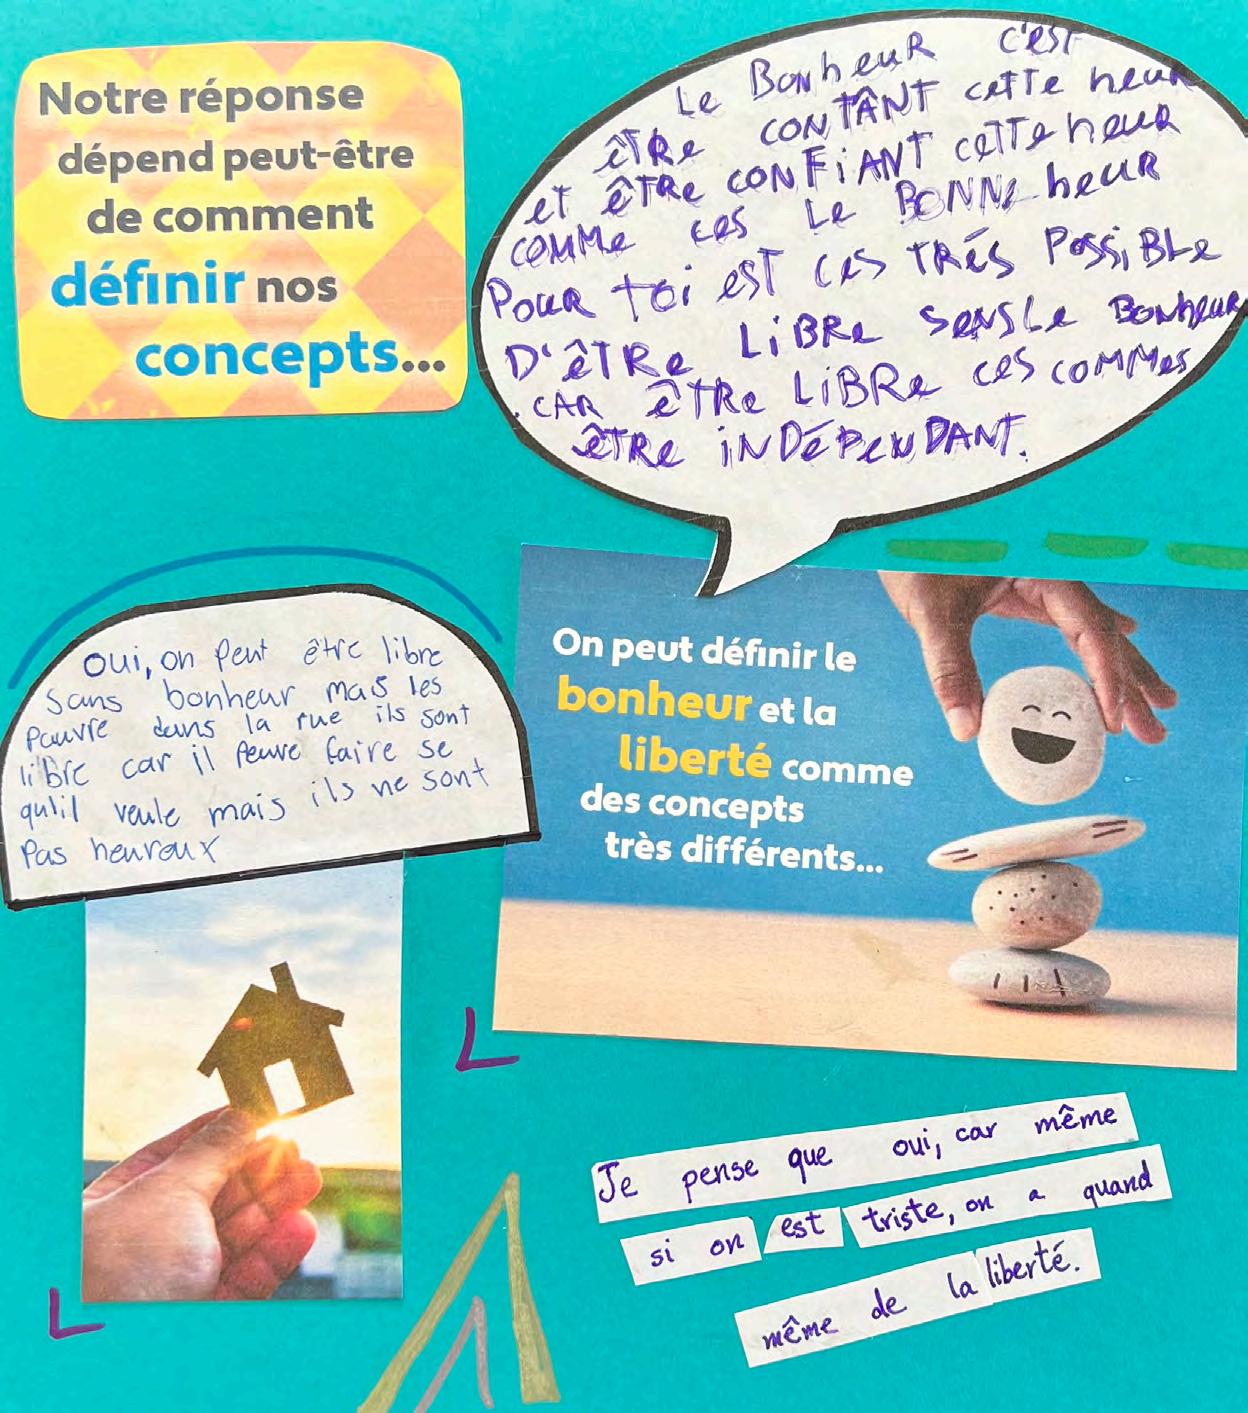 Notre réponse
dépend peut-être
de comment
définir nos
concepts...
Le Bonheur c'est
être contânt cette heur
et être confiant cette heur
comme ces le bonne heur
Pour toi est ces trés possible
D'être libre sensle Bonheur
.car être libre ces commes
être indépendant.
Oui, on peut être libre
sans bonheur mais les
pauvre dans la rue ils sont
libre car il peuve faire se
qu'il veule mais ils ne sont
pas heureux
On peut définir le
bonheur et la
liberté comme
des concepts
très différents...
Je pense que oui, car même
si on est triste, on a quand
même de la liberté.